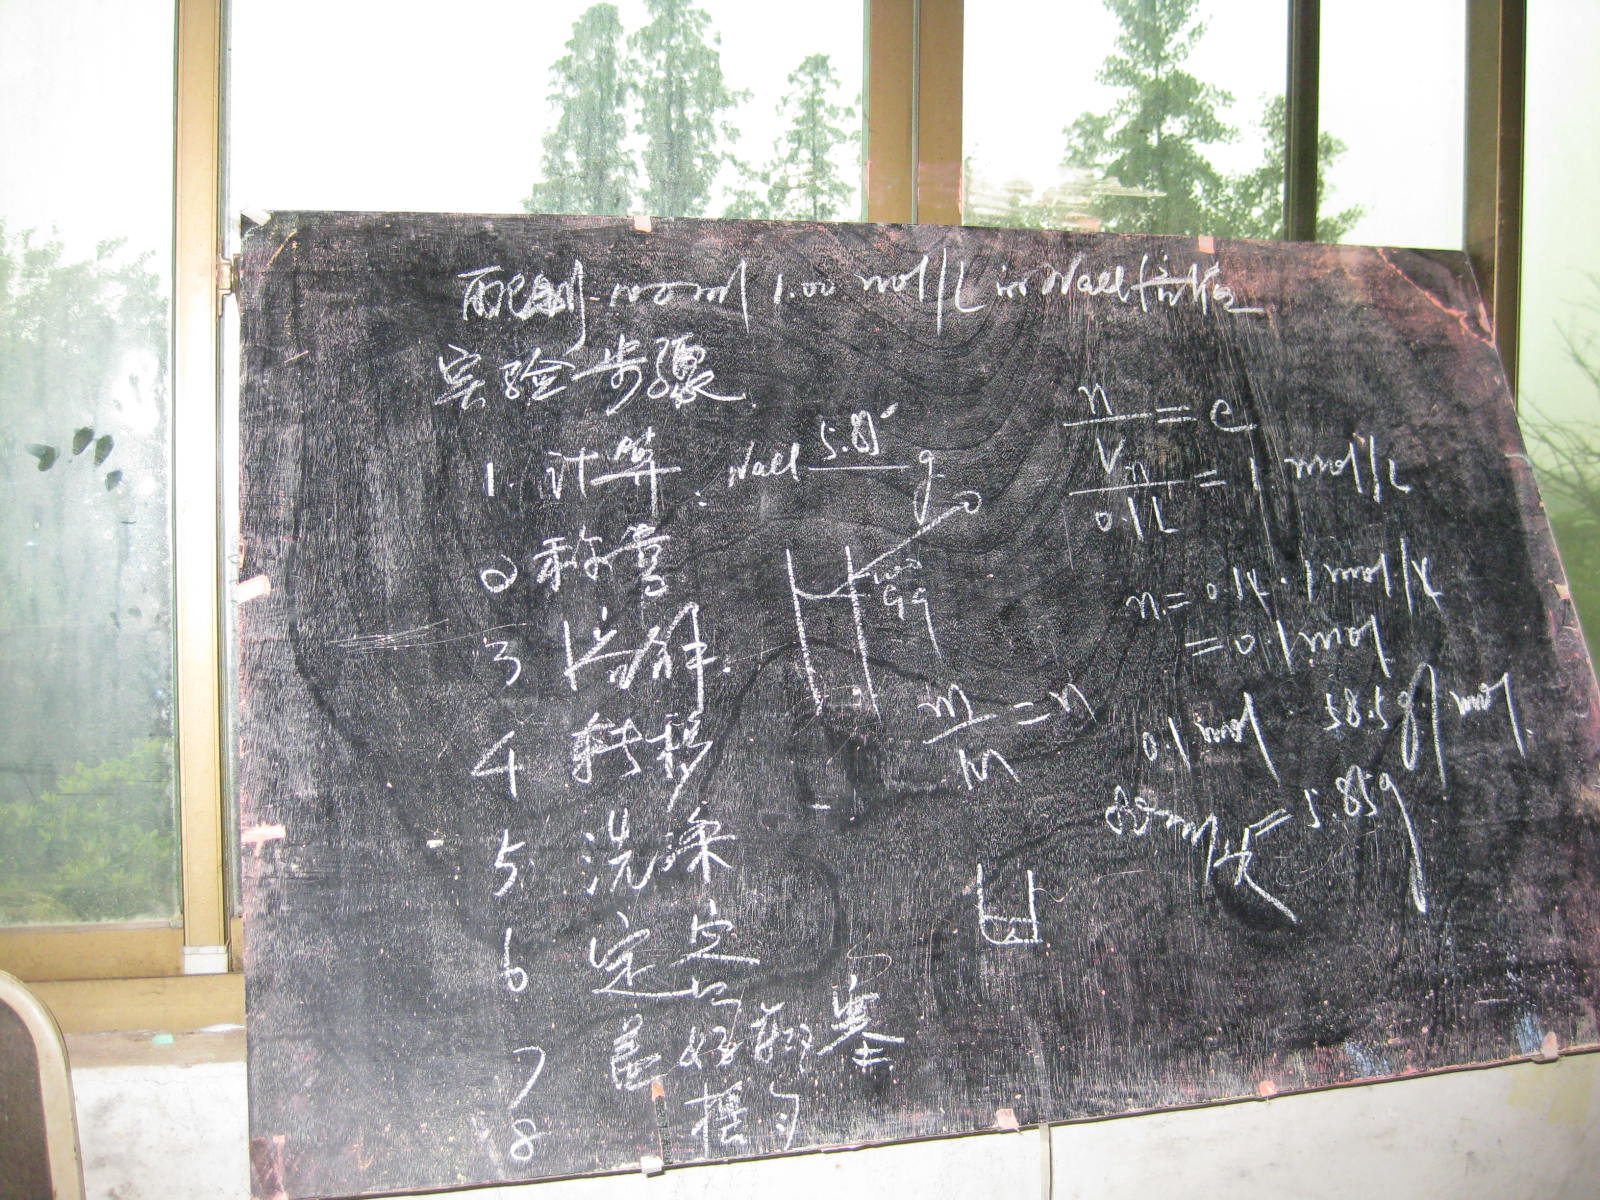 配制 100ml 1.00 mol/L NaCl
实验步骤
1. 计算: NaCl 5.85 g
2 称量
3 溶解.
4 转移
5. 洗涤
6 定容
7 盖好瓶塞
8 摇匀
n/V = c
n/0.1L = 1 mol/L
n = 0.1L · 1mol/L
= 0.1mol
m/M = n
0.1 mol · 58.5g/mol
= 5.85g